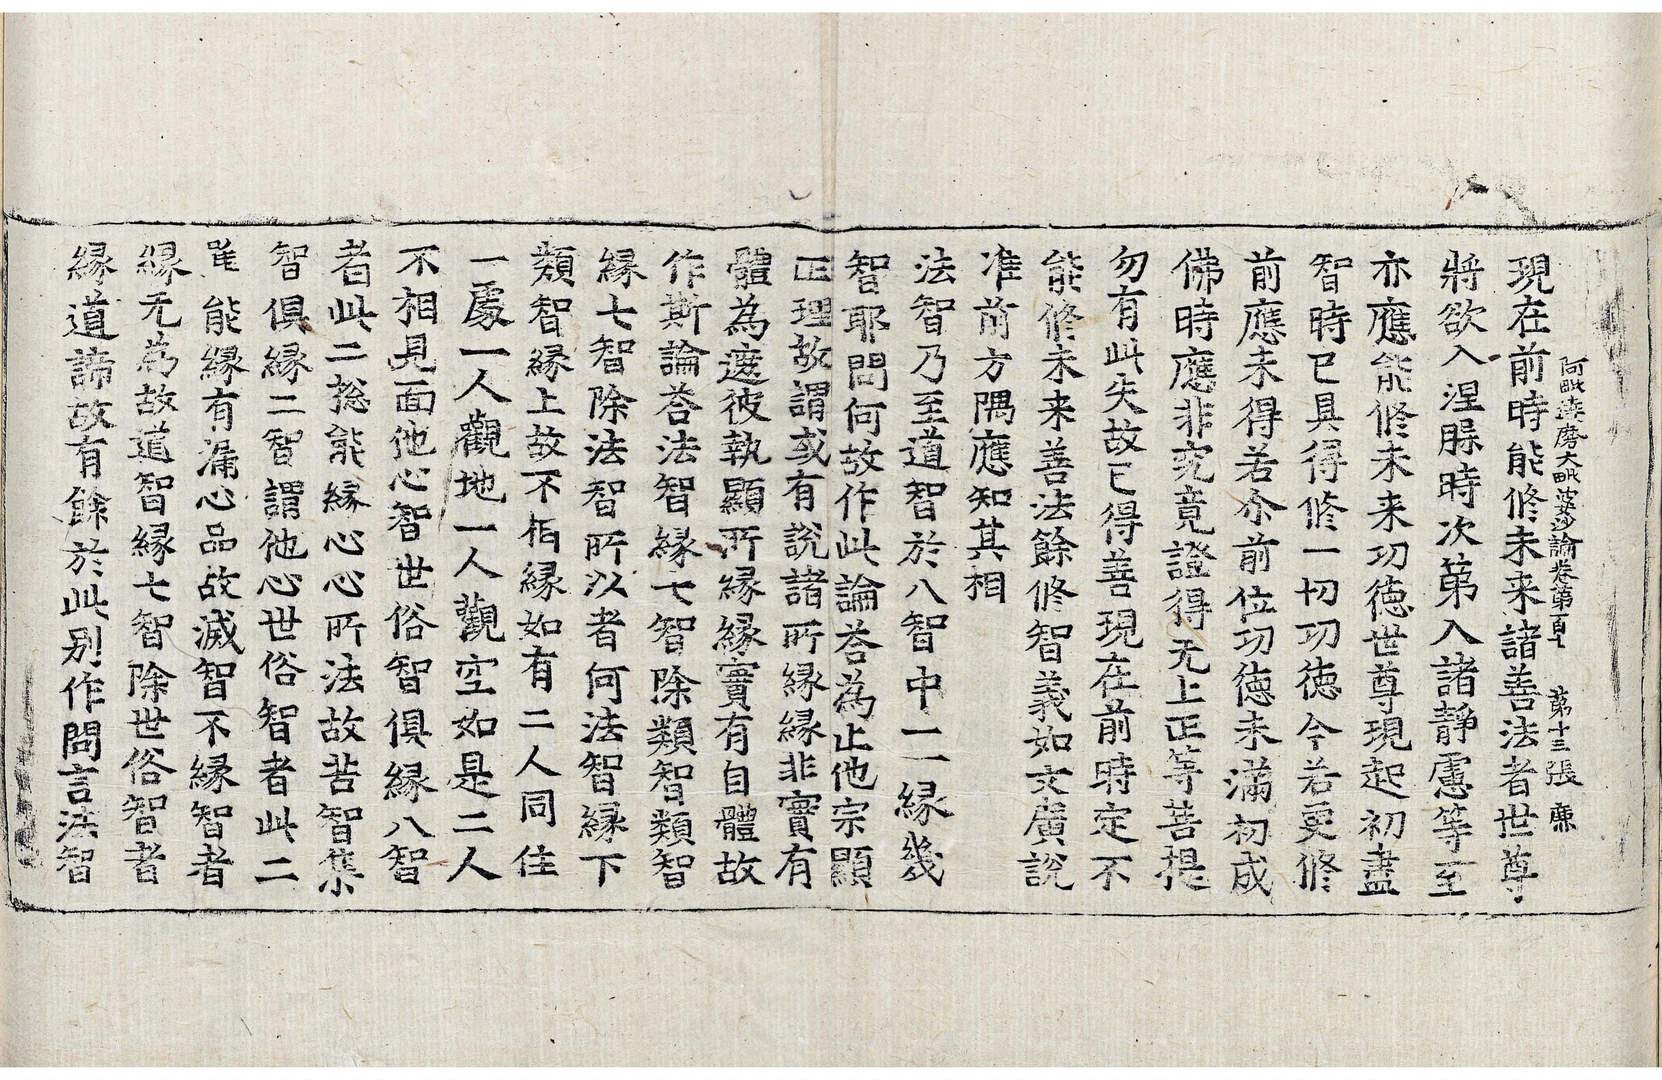 阿毗達磨大毗婆沙論卷第百七　第十三張　廉
現在前時能修未来諸善法者世尊
將欲入涅槃時次第入諸靜慮等至
亦應能修未来功德世尊現起初盡
智時已具得修一切功德今若更修
前應未得若尒前位功德未滿初成
佛時應非究竟證得无上正等菩提
勿有此失故已得善現在前時定不
能修未来善法餘修智義如文廣說
准前方隅應知其相
法智乃至道智於八智中一一緣幾
智耶問何故作此論荅為止他宗顯
正理故謂或有說諸所緣緣非實有
體為遮彼執顯所緣緣實有自體故
作斯論荅法智緣七智除類智類智
緣七智除法智所以者何法智緣下
類智緣上故不相緣如有二人同住
一處一人觀地一人觀空如是二人
不相見面他心智世俗智俱緣八智
者此二揔能緣心心所法故苦智集
智俱緣二智謂他心世俗智者此二
唯能緣有漏心品故滅智不緣智者
緣无為故道智緣七智除世俗智者
緣道諦故有餘於此別作問言法智